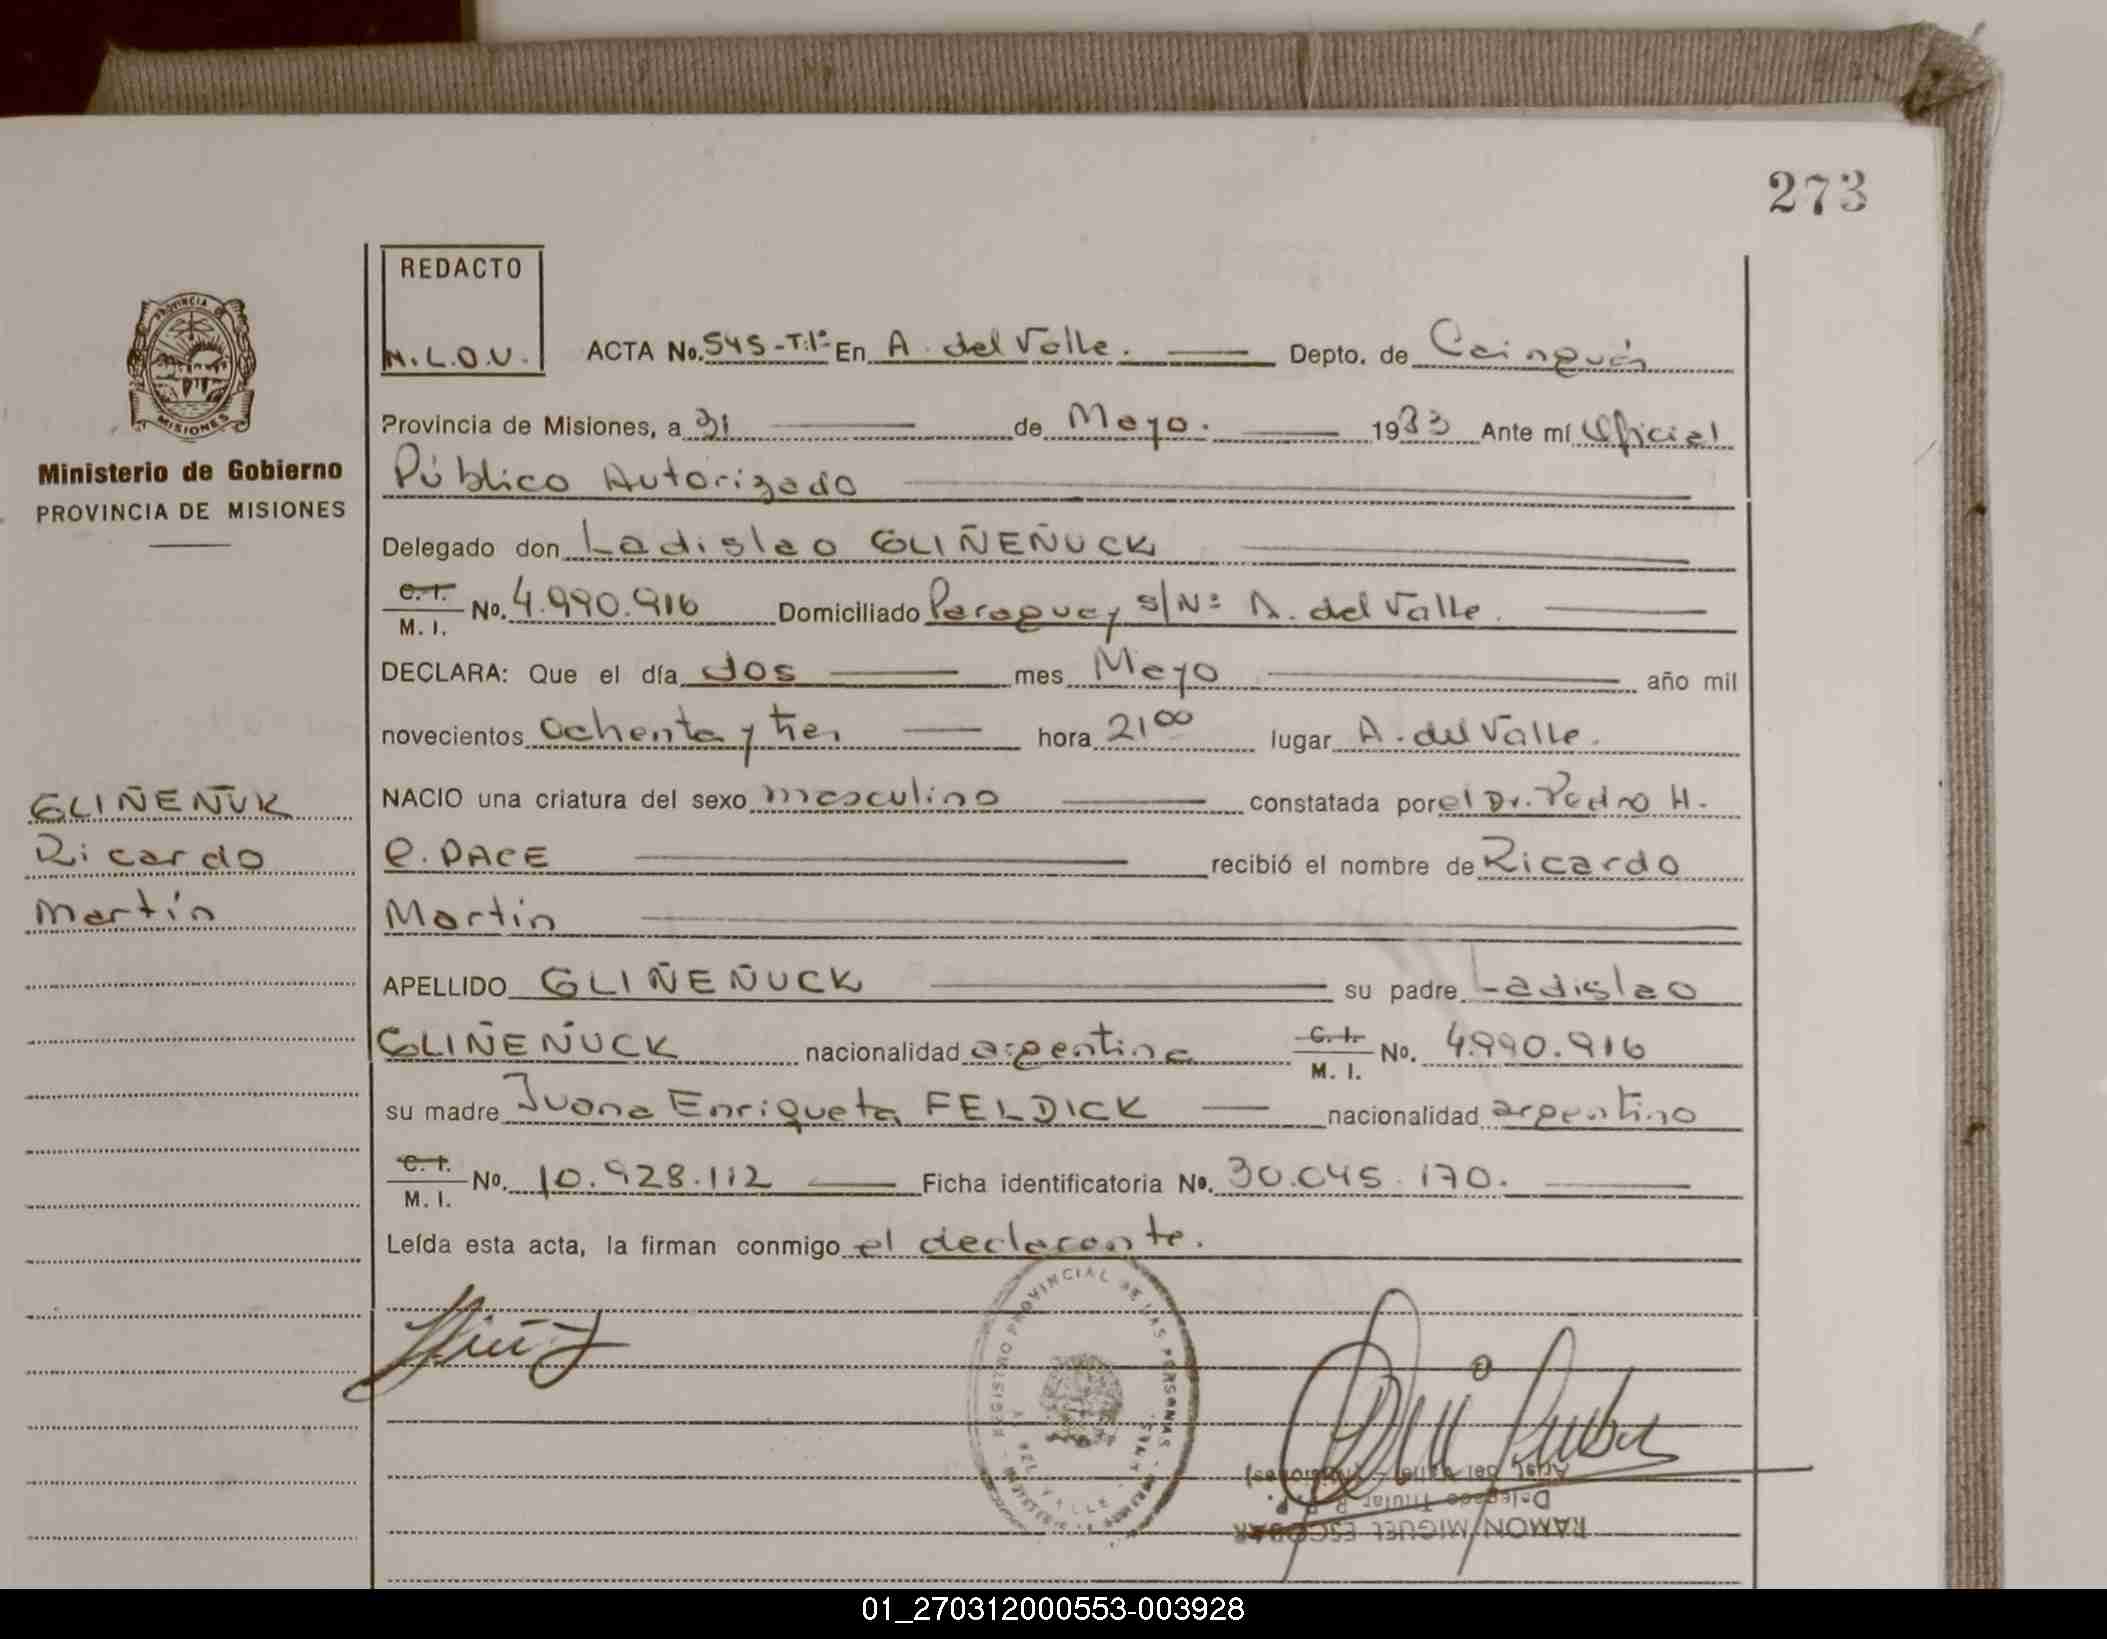 273
REDACTO
M.L.O.V.
ACTA No. 545-T.1º En A. del Valle. Depto. de Cainguás
Provincia de Misiones, a 31 de Mayo. 1983 Ante mí Oficial
Público Autorizado
Delegado don Ladislao GLIÑEÑUCK
C. I. M. I. No. 4.990.916 Domiciliado Paraguay s/Nº A. del Valle.
DECLARA: Que el día dos mes Mayo año mil
novecientos ochenta y tres hora 21⁰⁰ lugar A. del Valle.
NACIO una criatura del sexo masculino constatada por el Dr. Pedro H.
C. PACE recibió el nombre de Ricardo
Martín
APELLIDO GLIÑEÑUCK su padre Ladislao
GLIÑEÑUCK nacionalidad argentina C. I. M. I. No. 4.990.916
su madre Juana Enriqueta FELDICK nacionalidad argentino
C. I. M. I. No. 10.928.112 Ficha identificatoria No. 30.045.170.
Leída esta acta, la firman conmigo el declarante.
PROVINCIA
MISIONES
Ministerio de Gobierno
PROVINCIA DE MISIONES
GLIÑEÑUK
Ricardo
Martín
REGISTRO PROVINCIAL DE LAS PERSONAS
DEL VALLE
RAMON MIGUEL ESCOBAR
Delegado Titular
Arist. del Valle - (Misiones)
01_270312000553-003928